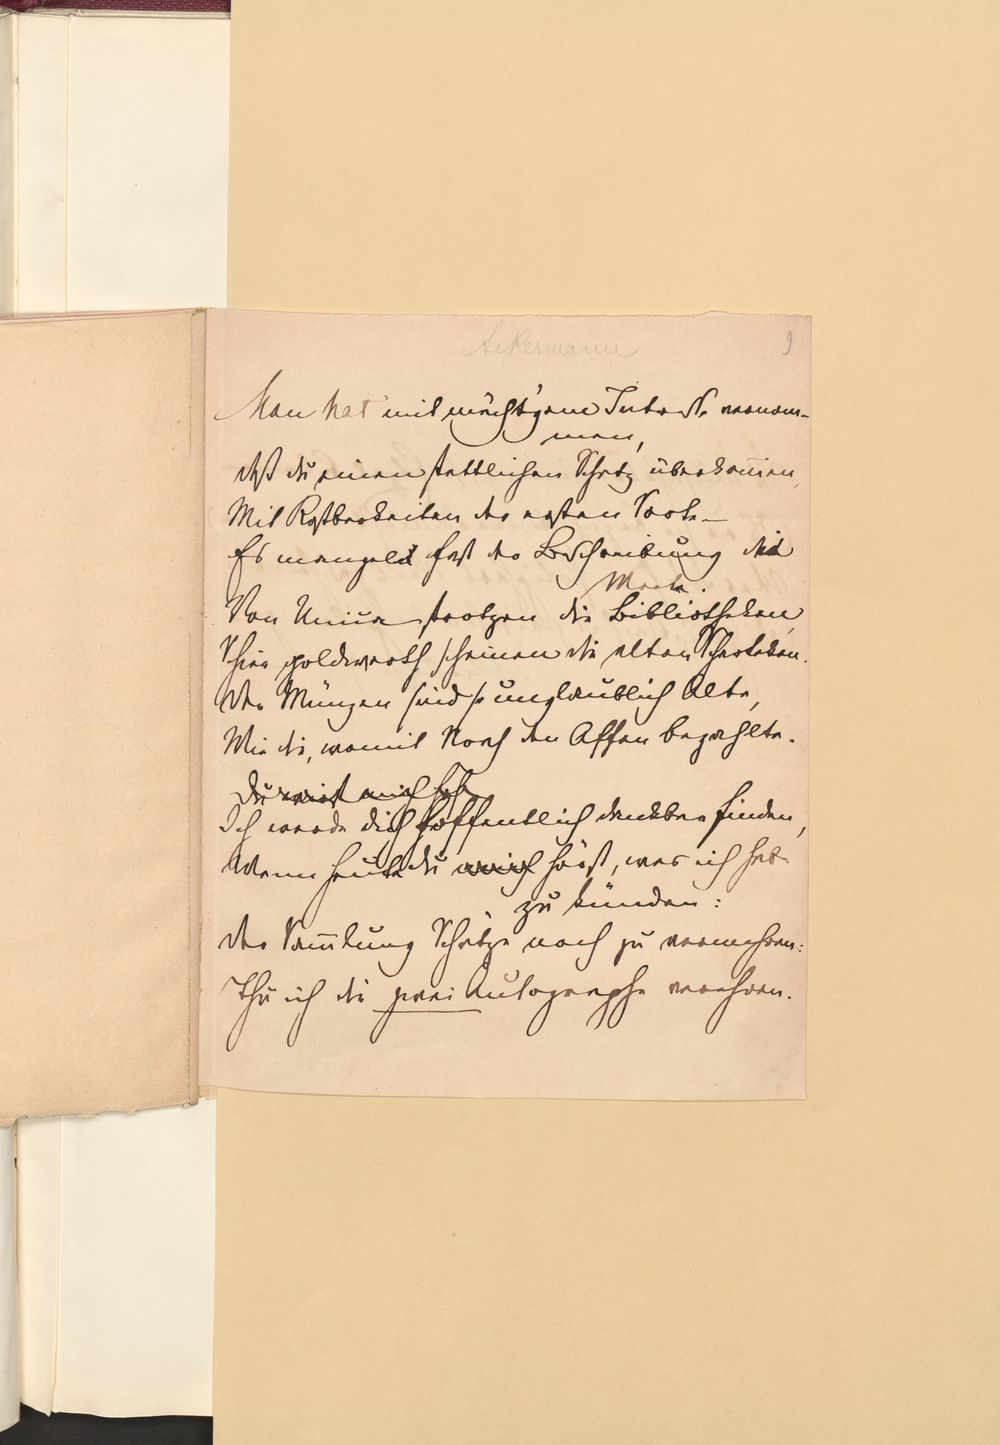 Ackermann
9
Man hat mit mächt'gem Interesse vernom-
men,
daß du einen stattlichen Schatz überkommen,
Mit Kostbarkeiten der ersten Sorte –
Es mangelt fast der Beschreibung das
Worte.
Von Unica strotzen die Bibliotheken,
Schier goldwerth scheinen die alten Scharteken.
Die Münzen sind so unglaublich alte,
Wie die, womit Noah den Affen bezahlte.
Du wirst mich
Ich werde dich hoffentlich dankbar finden,
Wenn heute du mich hörst, was ich hab
zu künden:
Der Sammlung Schätze noch zu vermehren:
Thu ich die zwei Autographe verehren.